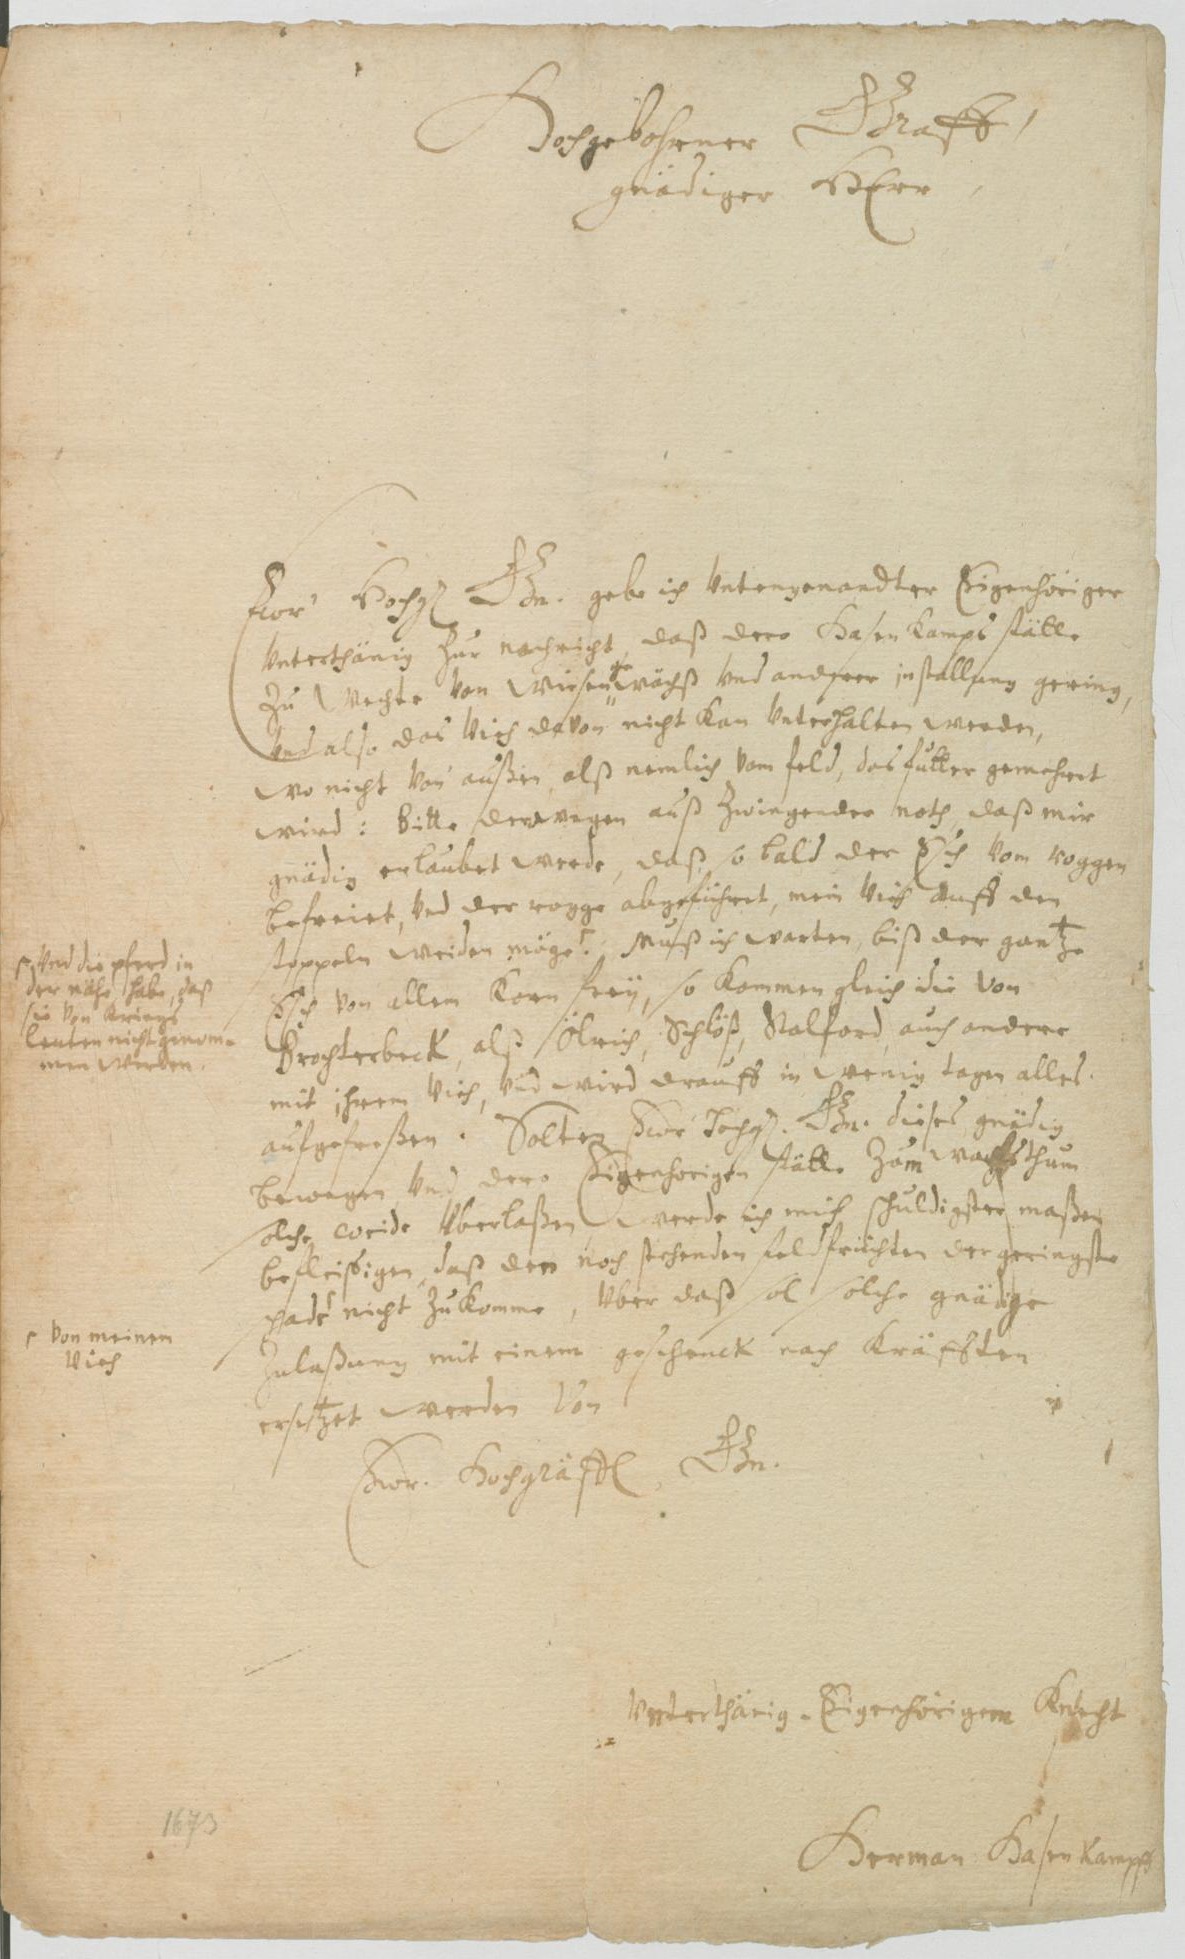 Hochgebohrner Graff,
gnädiger HErr,
Ewr Hochg. Gn. gebe ich Untengenandter Eigenhöriger
Unterthänig zur nachricht, daß dero HasenKamps stätte
zu Wechte von Wiesen wächß und anderer installung gering,
Und also das Vieh davon nicht Kan Unterhalten werden,
wo nicht von außen, alß nemlich vom feld, das futter gemehret
wird: Bitte derowegen auß zwingender noth, daß mir
gnädig erlaubet werde, daß so bald der Esch vom roggen
befreiet, Und der rogge abgeführet, mein Vieh auff den
stoppeln weiden möge. Muß ich warten, biß der gantze
Esch von allem Korn frey, so Kommen gleich die von
Brochterbeck, alß Ölrich, Schlöß, Stalford, auch andere
mit ihrem Vieh, Und wird drauff in wenig tagen alles
aufgefreßen. Solten Ewr Hochg. Gn. dieses gnädig
bewegen Und dero Eigenhörigen stätte zum wachsthum
solche weide Uberlaßen, werde ich mich schuldigster maßen
befleißigen, daß den noch stehenden feldfrüchten der geringste
schade nicht zuKomme, Uber daß sol solche gnädige
Zulaßung mit einem geschenck nach Kräfften
ersetzet werden Von
Ewr. Hochgräffl. Gn.
Und die pferd in
der nähe habe, daß
sie von Kriegs
leuten nicht genom-
men werden.
Von meinem
Vieh
Unterthänig-Eigenhörigem Knecht
Herman HasenKampff
1673